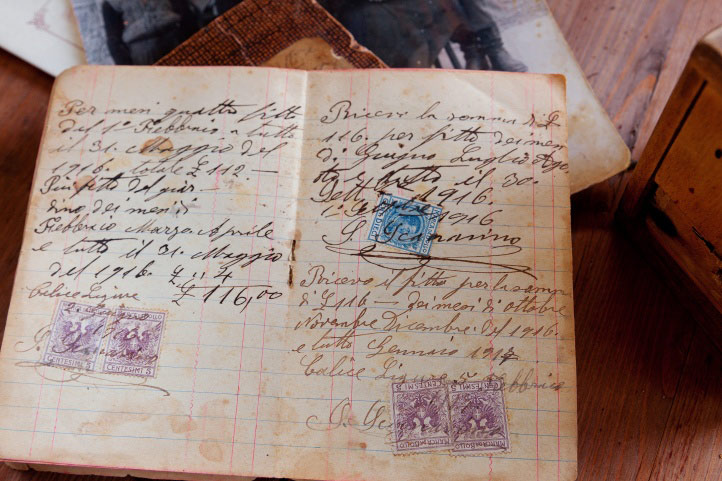 Per mesi quattro fitto
dal 1° Febbraio a tutto
il 31. Maggio del
1916. totale £ 112 —
Più fitto del giar-
dino dei mesi di
Febbraio Marzo Aprile
e tutto il 31. Maggio
del 1916. £ .. 4
£ 116,00
Calice Ligure
CENTESIMI 5
CENTESIMI 5
Ricevi la somma di £
116. per fitto dei mesi
di Giugno Luglio Ago
sto e tutto il 30.
Sett 1916.
1916
G.
Ricevo il fitto per la somma
di £ 116 — dei mesi di ottobre
Novembre Dicembre del 1916.
e tutto Gennaio 1917
Calice Ligure 5 Febbraio
G.
CENTESIMI 5
CENTESIMI 5
MARCA DA BOLLO
MARCA DA BOLLO